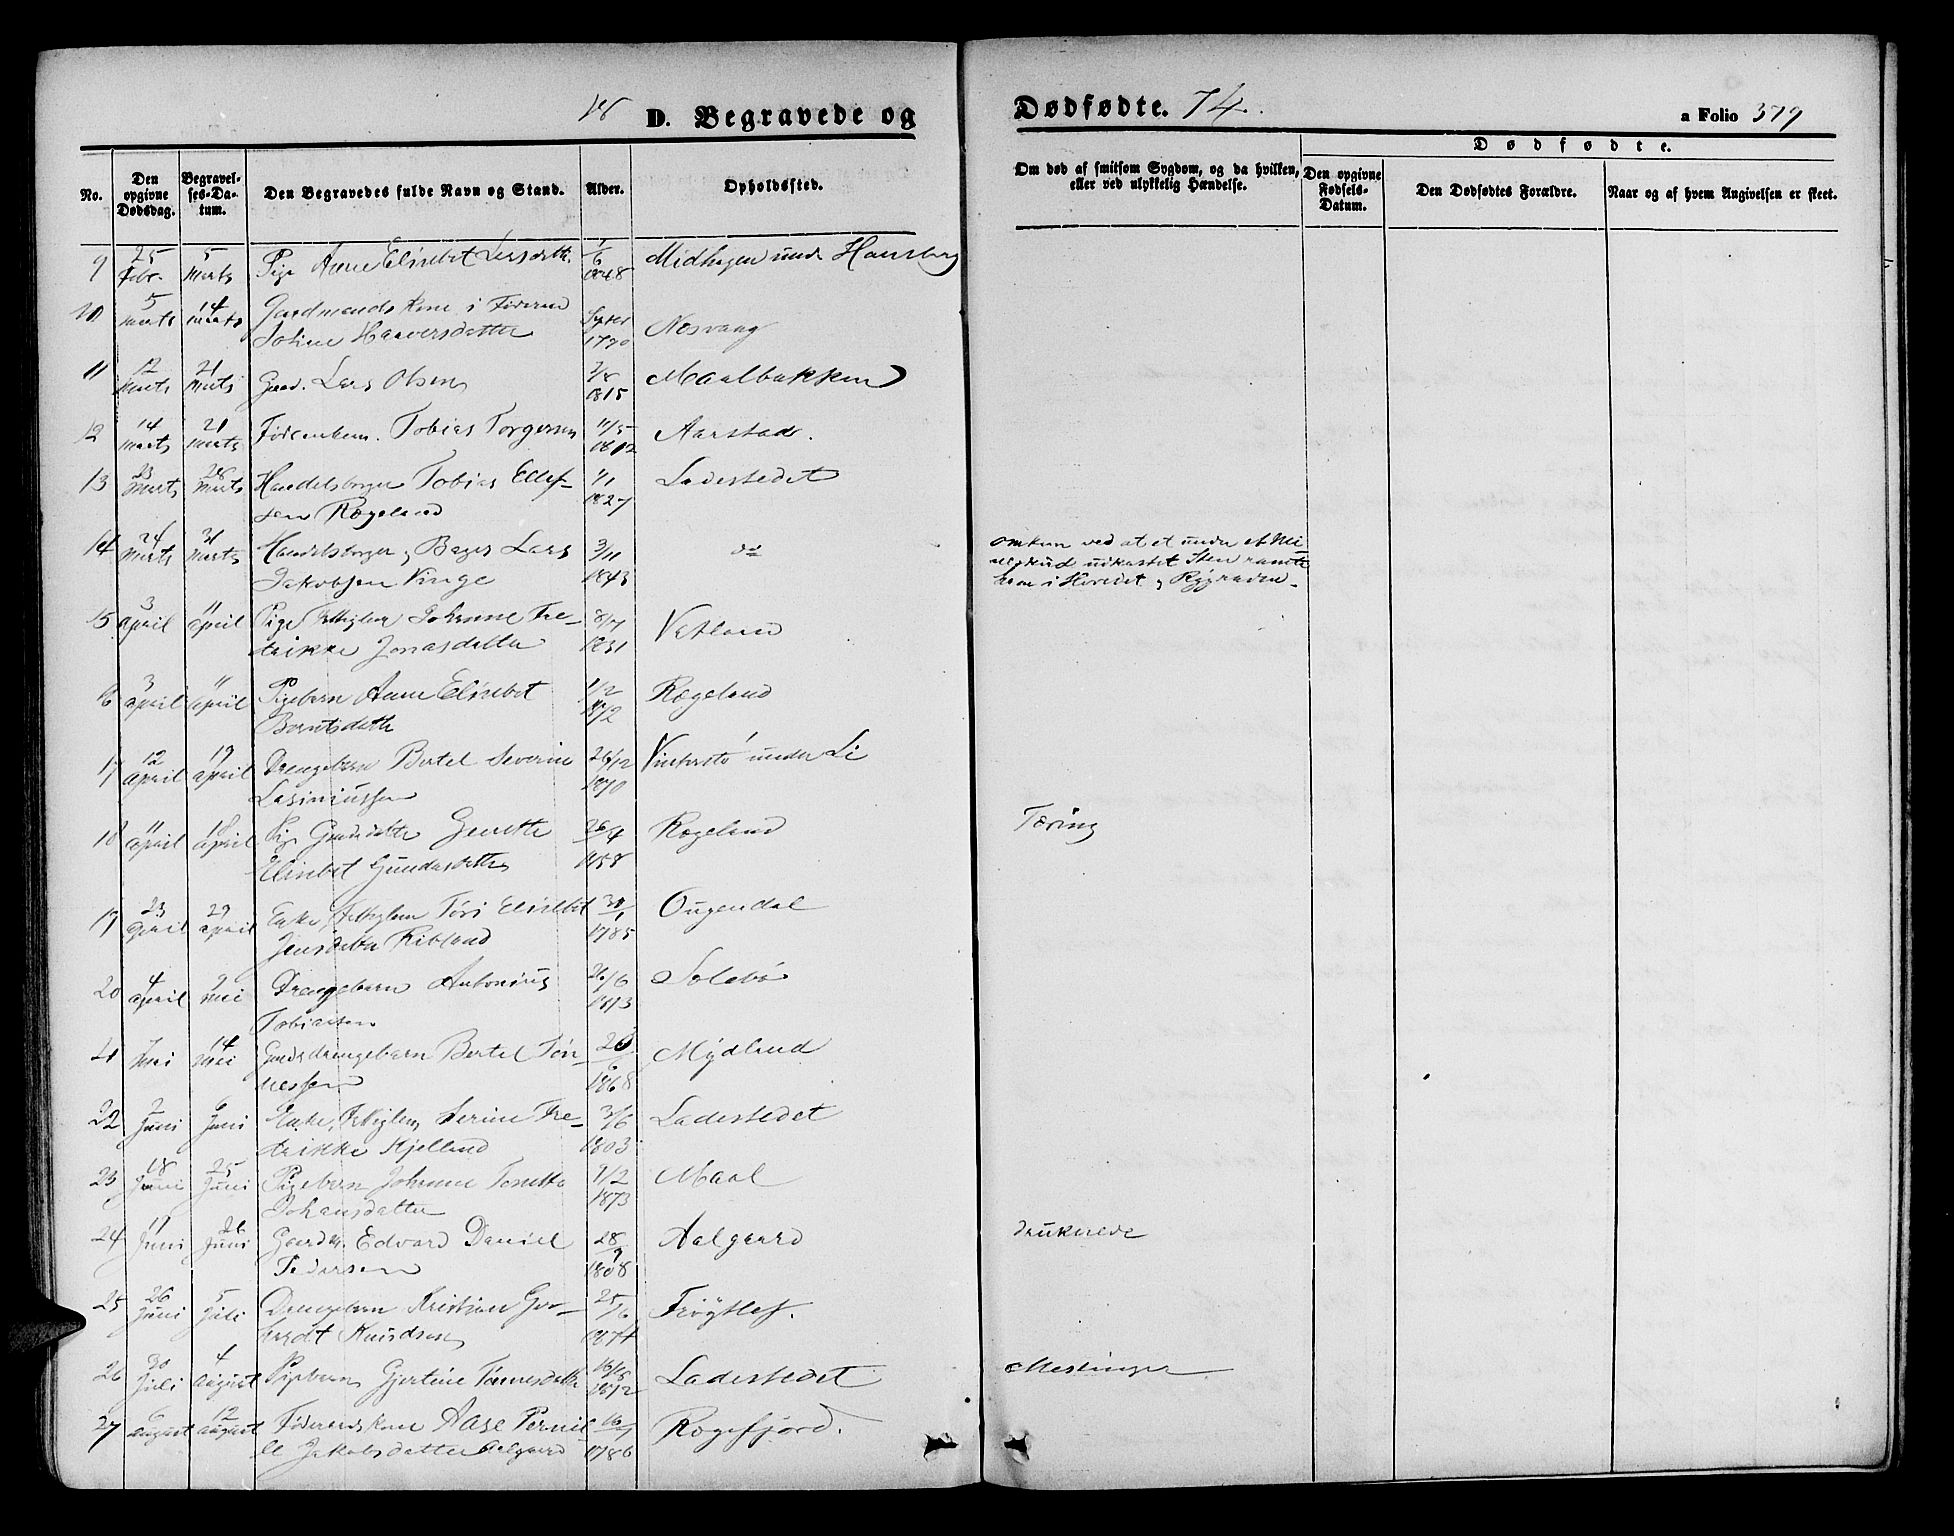 18 D. Begravede og
Dødfødte. 74.
a Folio 379
No.
Den opgivne Dødsdag.
Begravelses-Datum.
Den Begravedes fulde Navn og Stand.
Alder.
Opholdssted.
Om død af smitsom Sygdom, og da hvilken, eller ved ulykkelig Hændelse.
Dødfødte.
Den opgivne Fødsels-Datum.
Den Dødfødtes Forældre.
Naar og af hvem Angivelsen er skeet.
9 25 Febr. 5 Marts Pige Anne Elisebet Larsdatter 1848 Midhagen under Hausberg
10 5 Marts 14 Marts Gaardmands Kone i Føderaad
Johine Haaversdatter Septer 1790 Nesvaag
11 12 Marts 21 Marts Gaard. Lars Olsen 7/8 1815 Maalbakken
12 14 Marts 21 Marts Tobias Torgersen 11/5 1812 Aarstad.
13 23 Marts 28 Marts Handelsborger Tobias Edef-
sen Rægeland 1/1 1827 Ladestedet
14 24 Marts 31 Marts Handelsborger og Bager Lars
Jakobsen Vinge 3/11 1843 do
omkom ved at et under et Mi-
neskud udkastet Sten ramte
ham i Hovedet og Rygraden.
15 3 April 11 April Pige Johanne Fre-
drikke Jonasdatter 8/7 1831 Vetland
16 3 April 11 April Pigebarn Anne Elisebet
Berntsdatter 1/2 1872 Rægeland
17 12 April 19 April Drengebarn Bertel Severin
Lasiniussen 26/12 1870 Vinterstø under Li
18 11 April 18 April Genette
Elisebet Gundersdatter 26/4 1858 Rægeland
Tæring
19 23 April 29 April Enke, Tøri Elisebet
Jensdatter Ribland 30/1 1785 Ougendal
20 4 April 9 Mai Drengebarn Antonius
Tobiassen 26/6 1873 Solebø
21 7 Mai 14 Mai Gaardsdrengebarn Bertel Tøn-
nessen 1868 Mydland
22 2 Juni 6 Juni Enke, Serine Fre-
drikke Kjelland 3/6 1803 Ladestedet
23 18 Juni 25 Juni Pigebarn Johanne Tonette
Johansdatter 9/2 1873 Maal
24 17 Juni 26 Juni Gaardm. Edvard Daniel
Pedersen 28/9 1808 Aalgaard
druknede
25 26 Juni 5 Juli Drengebarn Kristian Ger-
hardt Knudsen 25/6 1874 Frøytlef.
26 30 Juli 4 August Pigebarn Gjertine Tønnesdatter 16/5 1872 Ladestedet
Meslinger
27 6 August 12 August Føderaadskone Aase Pernil-
le Jakobsdatter Aalgaard 16/7 1786 Rægefjord.